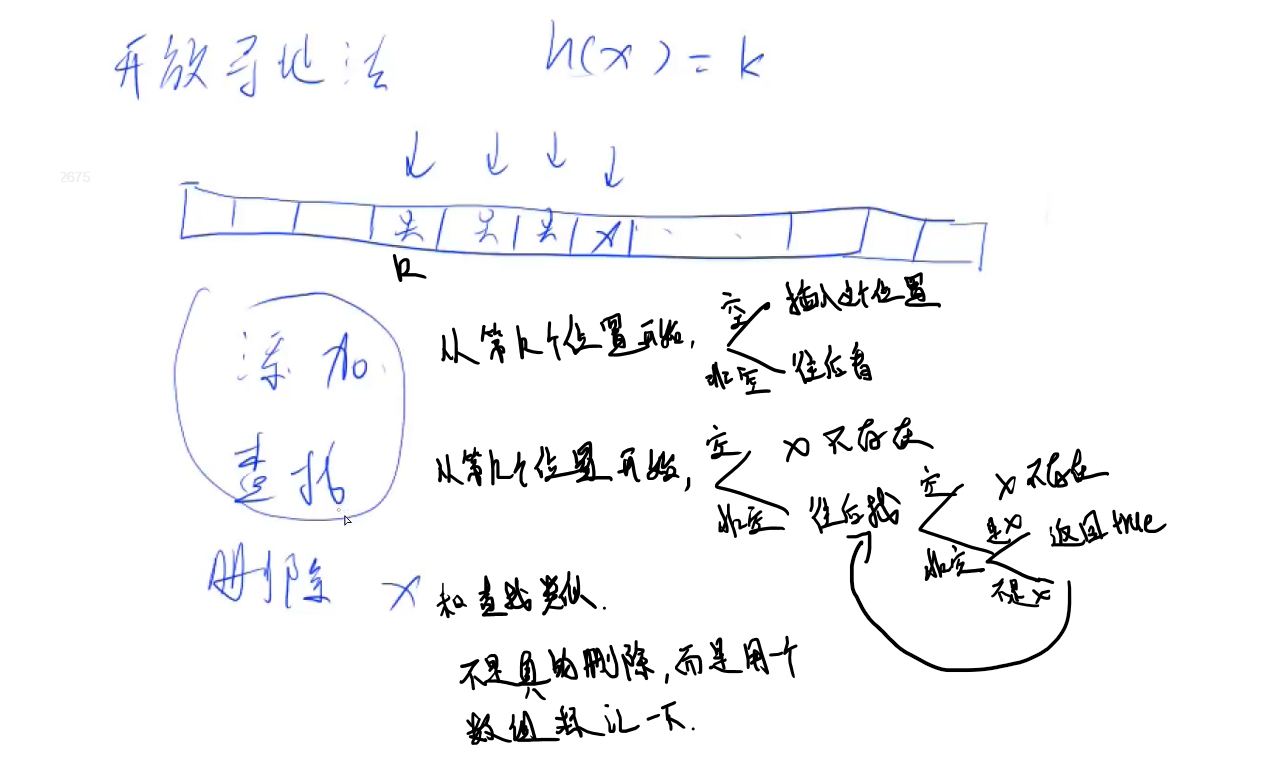 开放寻址法 h(x) = k
2675
关 关 关 x
k
添加 从第k个位置开始, 空 插入这个位置
非空 往后看
查找 从第k个位置开始, 空 x不存在
非空 往后找 空 x不存在
非空 是x 返回true
不是x
删除 x 和查找类似.
不是真的删除,而是用个
数值标记一下.